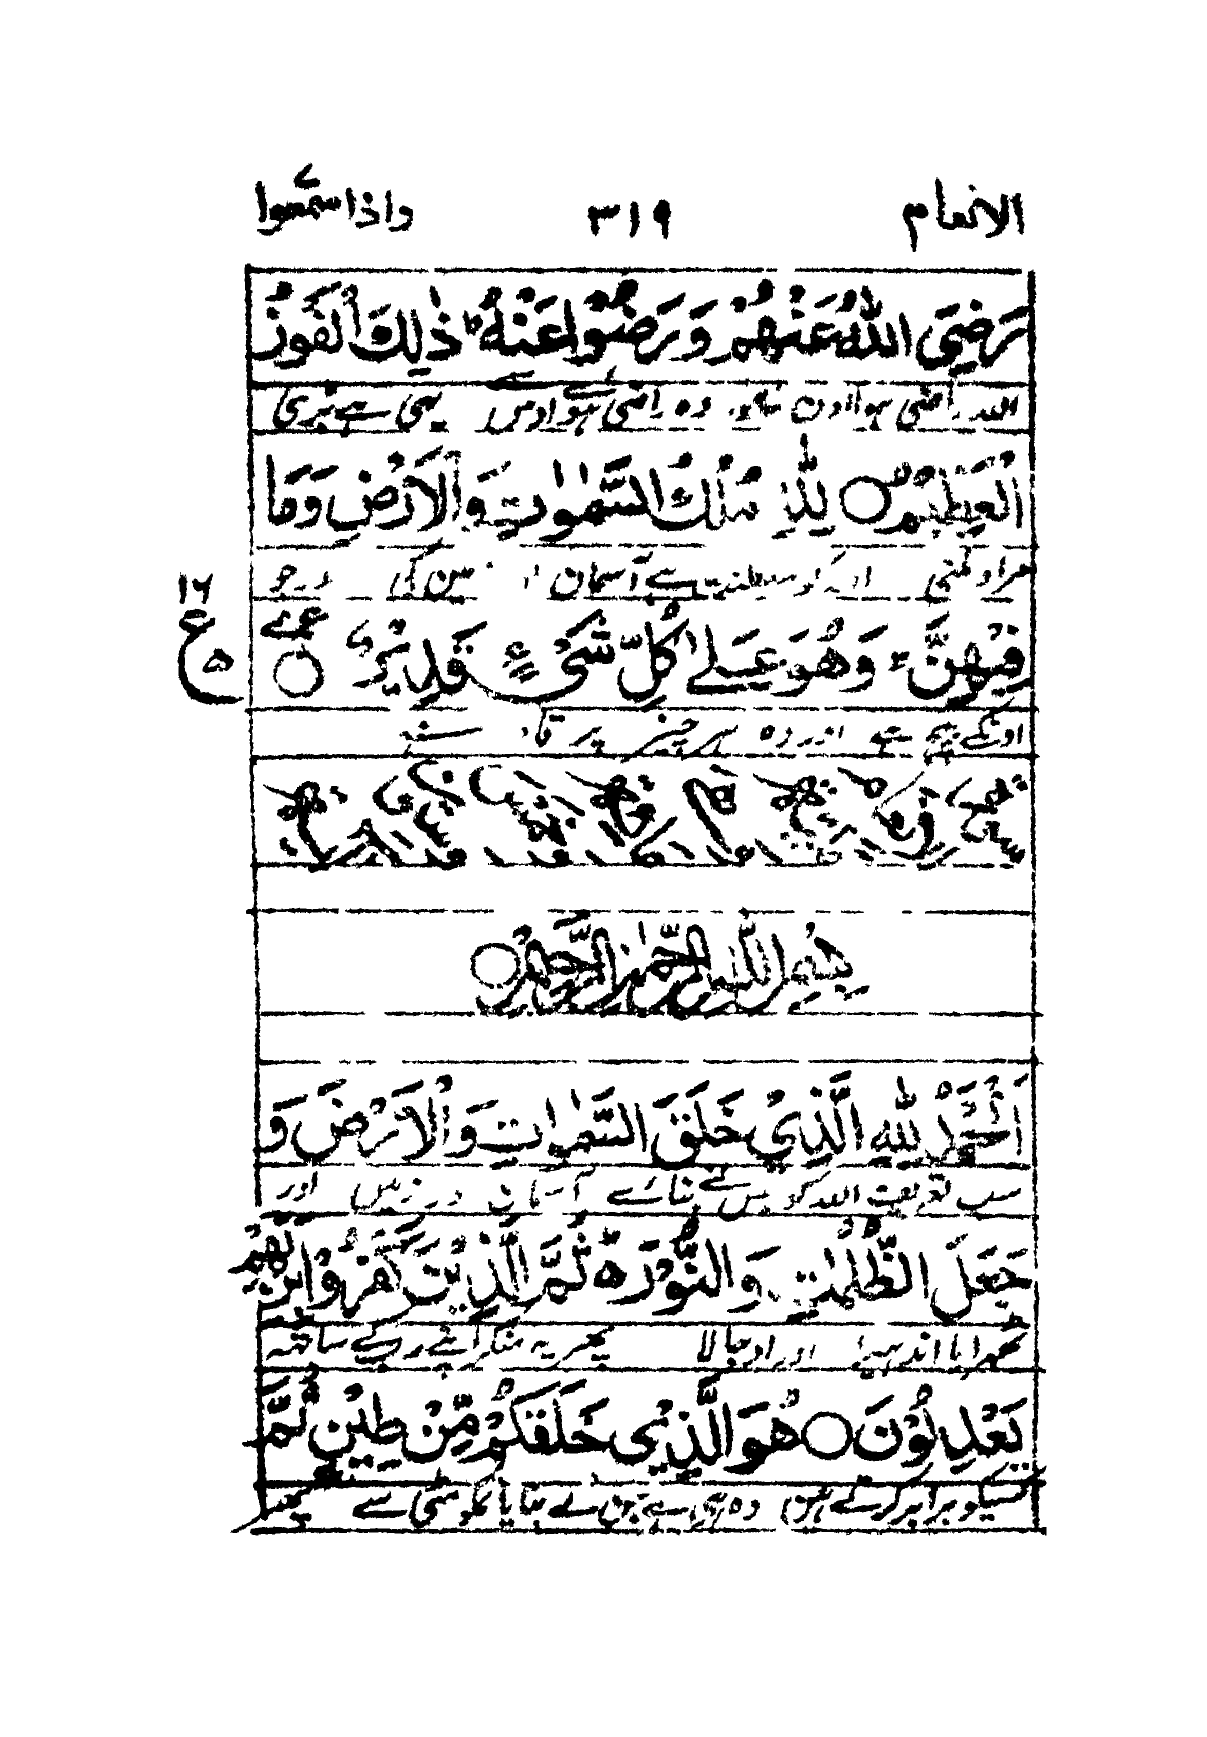 الانعام ۳۱۹ واذا سمعوا
رَضِيَ اللّٰهُ عَنْهُمْ وَ رَضُوْا عَنْهُ ؕ ذٰلِكَ الْفَوْزُ
اللہ راضی ہوا اون وہ راضی ہوے اوس سے یہی ہے بڑی
الْعَظِيْمُ ○ لِلّٰهِ مُلْكُ السَّمٰوٰتِ وَالْاَرْضِ وَمَا
مراد ملنی کو سلطنت ہے آسمان کی اور جو
فِيْهِنَّ ؕ وَهُوَ عَلٰى كُلِّ شَيْءٍ قَدِيْرٌ ○
۱۶ ع ۵
اونکے بیچ ہے اور وہ ہر چیز پر
بِسْمِ اللّٰهِ الرَّحْمٰنِ الرَّحِيْمِ ○
اَلْحَمْدُ لِلّٰهِ الَّذِيْ خَلَقَ السَّمٰوٰتِ وَالْاَرْضَ وَ
سب تعریف اللہ کو جس نے بنائے آسمان و زمین اور
جَعَلَ الظُّلُمٰتِ وَالنُّوْرَ ؕ ثُمَّ الَّذِيْنَ كَفَرُوْا بِرَبِّهِمْ
ٹھہرایا اندھیرا اور اوجالا پھر یہ منکر اپنے رب کے ساتھ
يَعْدِلُوْنَ ○ هُوَ الَّذِيْ خَلَقَكُمْ مِّنْ طِيْنٍ ثُمَّ
کسیکو برابر کرتے ہین وہ ہی ہے جن نے بنایا تمکو مٹی سے پھر